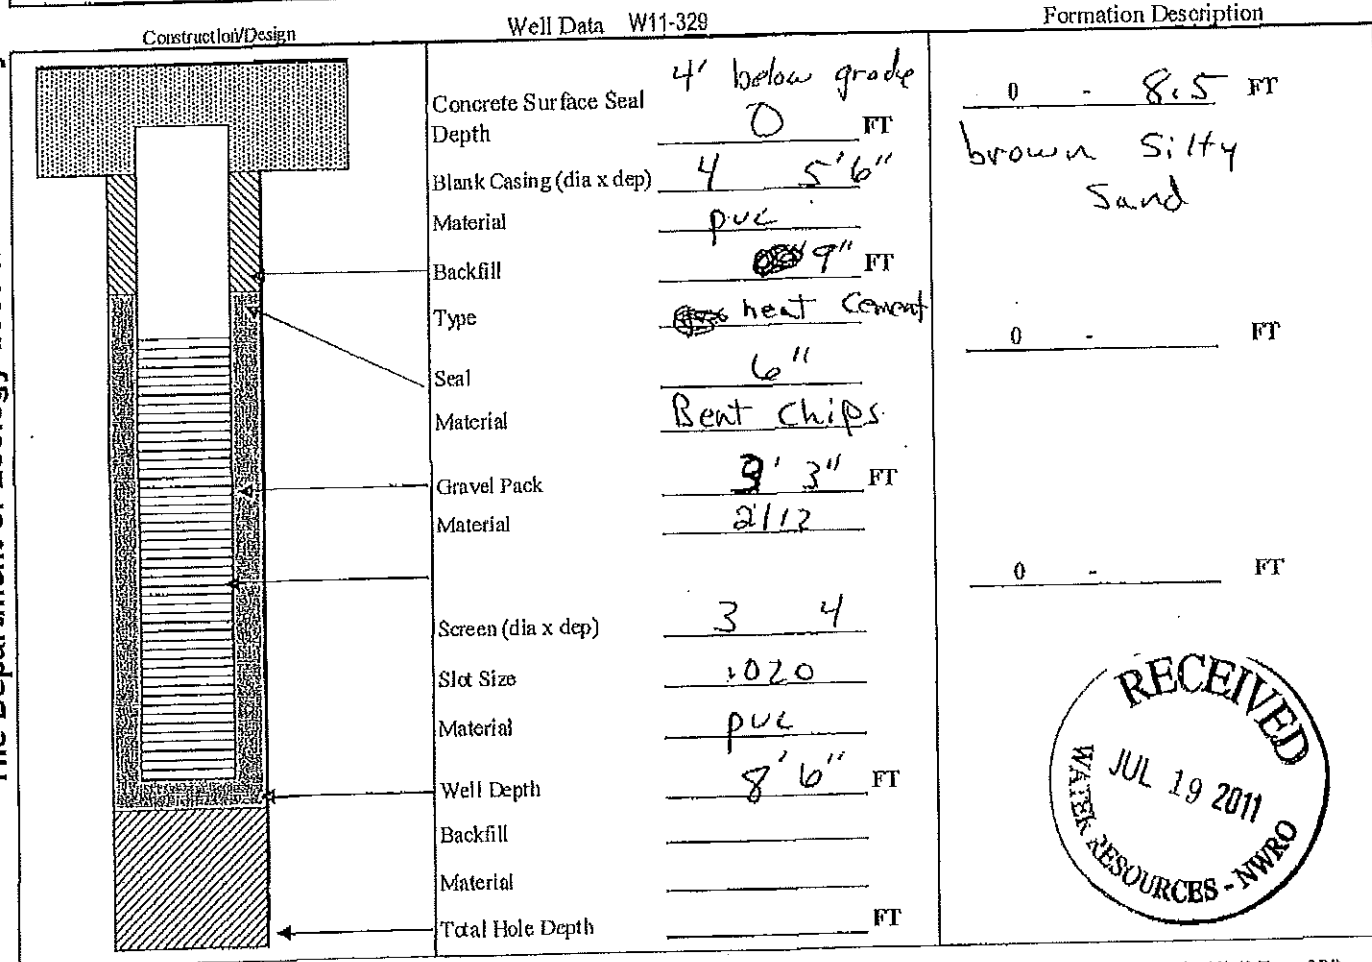 Construction/Design
Well Data W11-329
Formation Description
4' below grade
Concrete Surface Seal
Depth 0 FT
Blank Casing (dia x dep) 4 5'6"
Material pvc
Backfill 9" FT
Type neat Cement
Seal 6"
Material Bent Chips
Gravel Pack 3' 3" FT
Material 2/12
Screen (dia x dep) 3 4
Slot Size .020
Material pvc
Well Depth 8' 6" FT
Backfill
Material
Total Hole Depth FT
0 - 8.5 FT
brown Silty
Sand
0 - FT
0 - FT
RECEIVED
JUL 19 2011
WATER RESOURCES - NWRO
The Department of Ecology